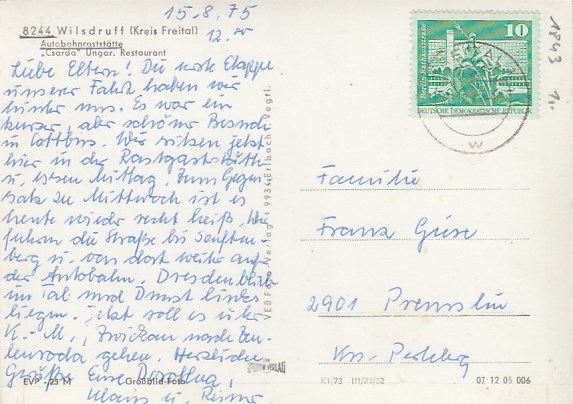 15.8.75
12.00
8244 Wilsdruff (Kreis Freital)
Autobahnraststätte
„Csarda" Ungar. Restaurant
Liebe Eltern! Die erste Etappe
unserer Fahrt haben wir
hinter uns. Es war ein
kurzer, aber schöner Besuch
in Cottbus. Wir sitzen jetzt
hier in der Rastgaststätte
u. essen Mittag. Zum Gegen-
satz zu Mittwoch ist es
heute wieder recht heiß. Wir
fuhren die Straße bis Senften-
berg u. von dort weiter auf
der Autobahn. Dresden blieb
im Tal und Dunst links
liegen. Jetzt soll es über
K.-M., Zwickau nach Zeu-
lenroda gehen. Herzliche
Grüße Eure
Klaus u.
EVP -,25 M
Großbild-Foto
VEB Foto-Verlag 9934 Erlbach Vogtl.
10
DEUTSCHE DEMOKRATISCHE REPUBLIK
w
1843
Familie
Franz Giese
2901 Premslin
Krs. Perleberg
VERLAG
K1/73 III/23/22
07 12 05 006